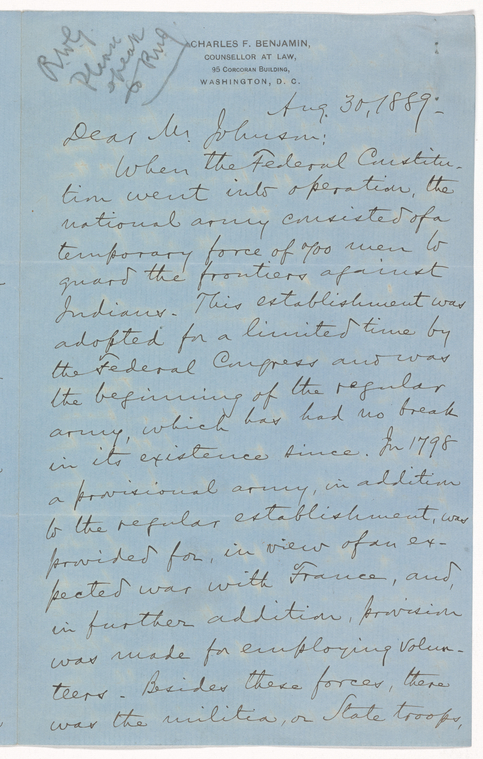 Please
speak
to
CHARLES F. BENJAMIN,
COUNSELLOR AT LAW,
95 CORCORAN BUILDING,
WASHINGTON, D. C.
Aug. 30, 1889.
Dear Mr. Johnson:
When the Federal Constitu-
tion went into operation, the
national army consisted of a
temporary force of 700 men to
guard the frontiers against
Indians. This establishment was
adopted for a limited time by
the Federal Congress and was
the beginning of the regular
army, which has had no break
in its existence since. In 1798
a provisional army, in addition
to the regular establishment, was
provided for, in view of an ex-
pected war with France, and,
in further addition, provision
was made for employing volun-
teers. Besides these forces, there
was the militia, or State troops,